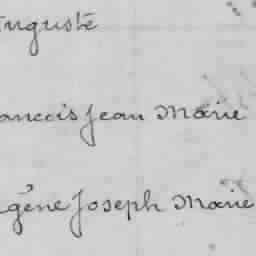 Auguste
Francois Jean Marie
Eugène Joseph Marie